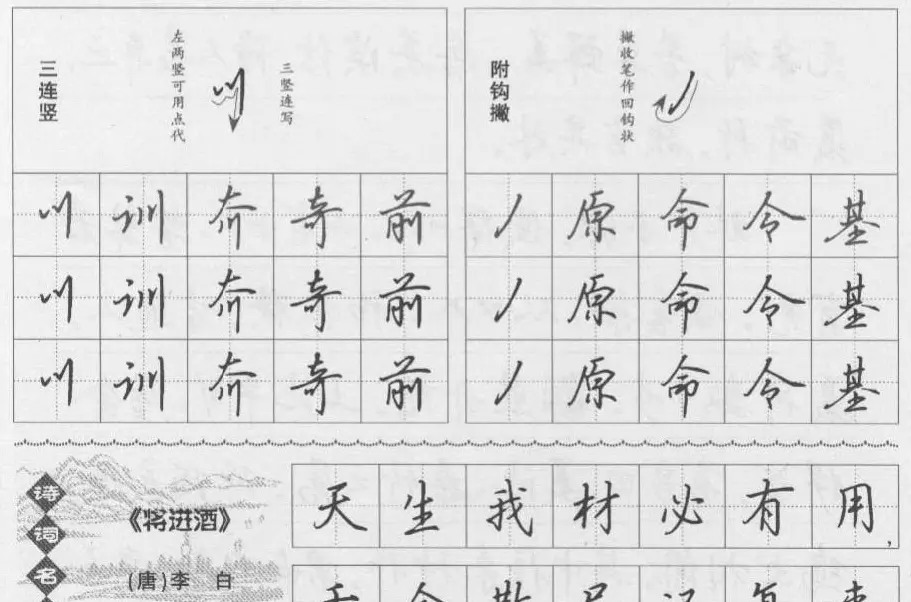 三连竖
左两竖可用点代
三竖连写
附钩撇
撇收笔作回钩状
训 奇 前
原 命 令 基
训 奇 前
原 命 令 基
训 奇 前
原 命 令 基
诗词名
《将进酒》
(唐)李 白
天生我材必有用,